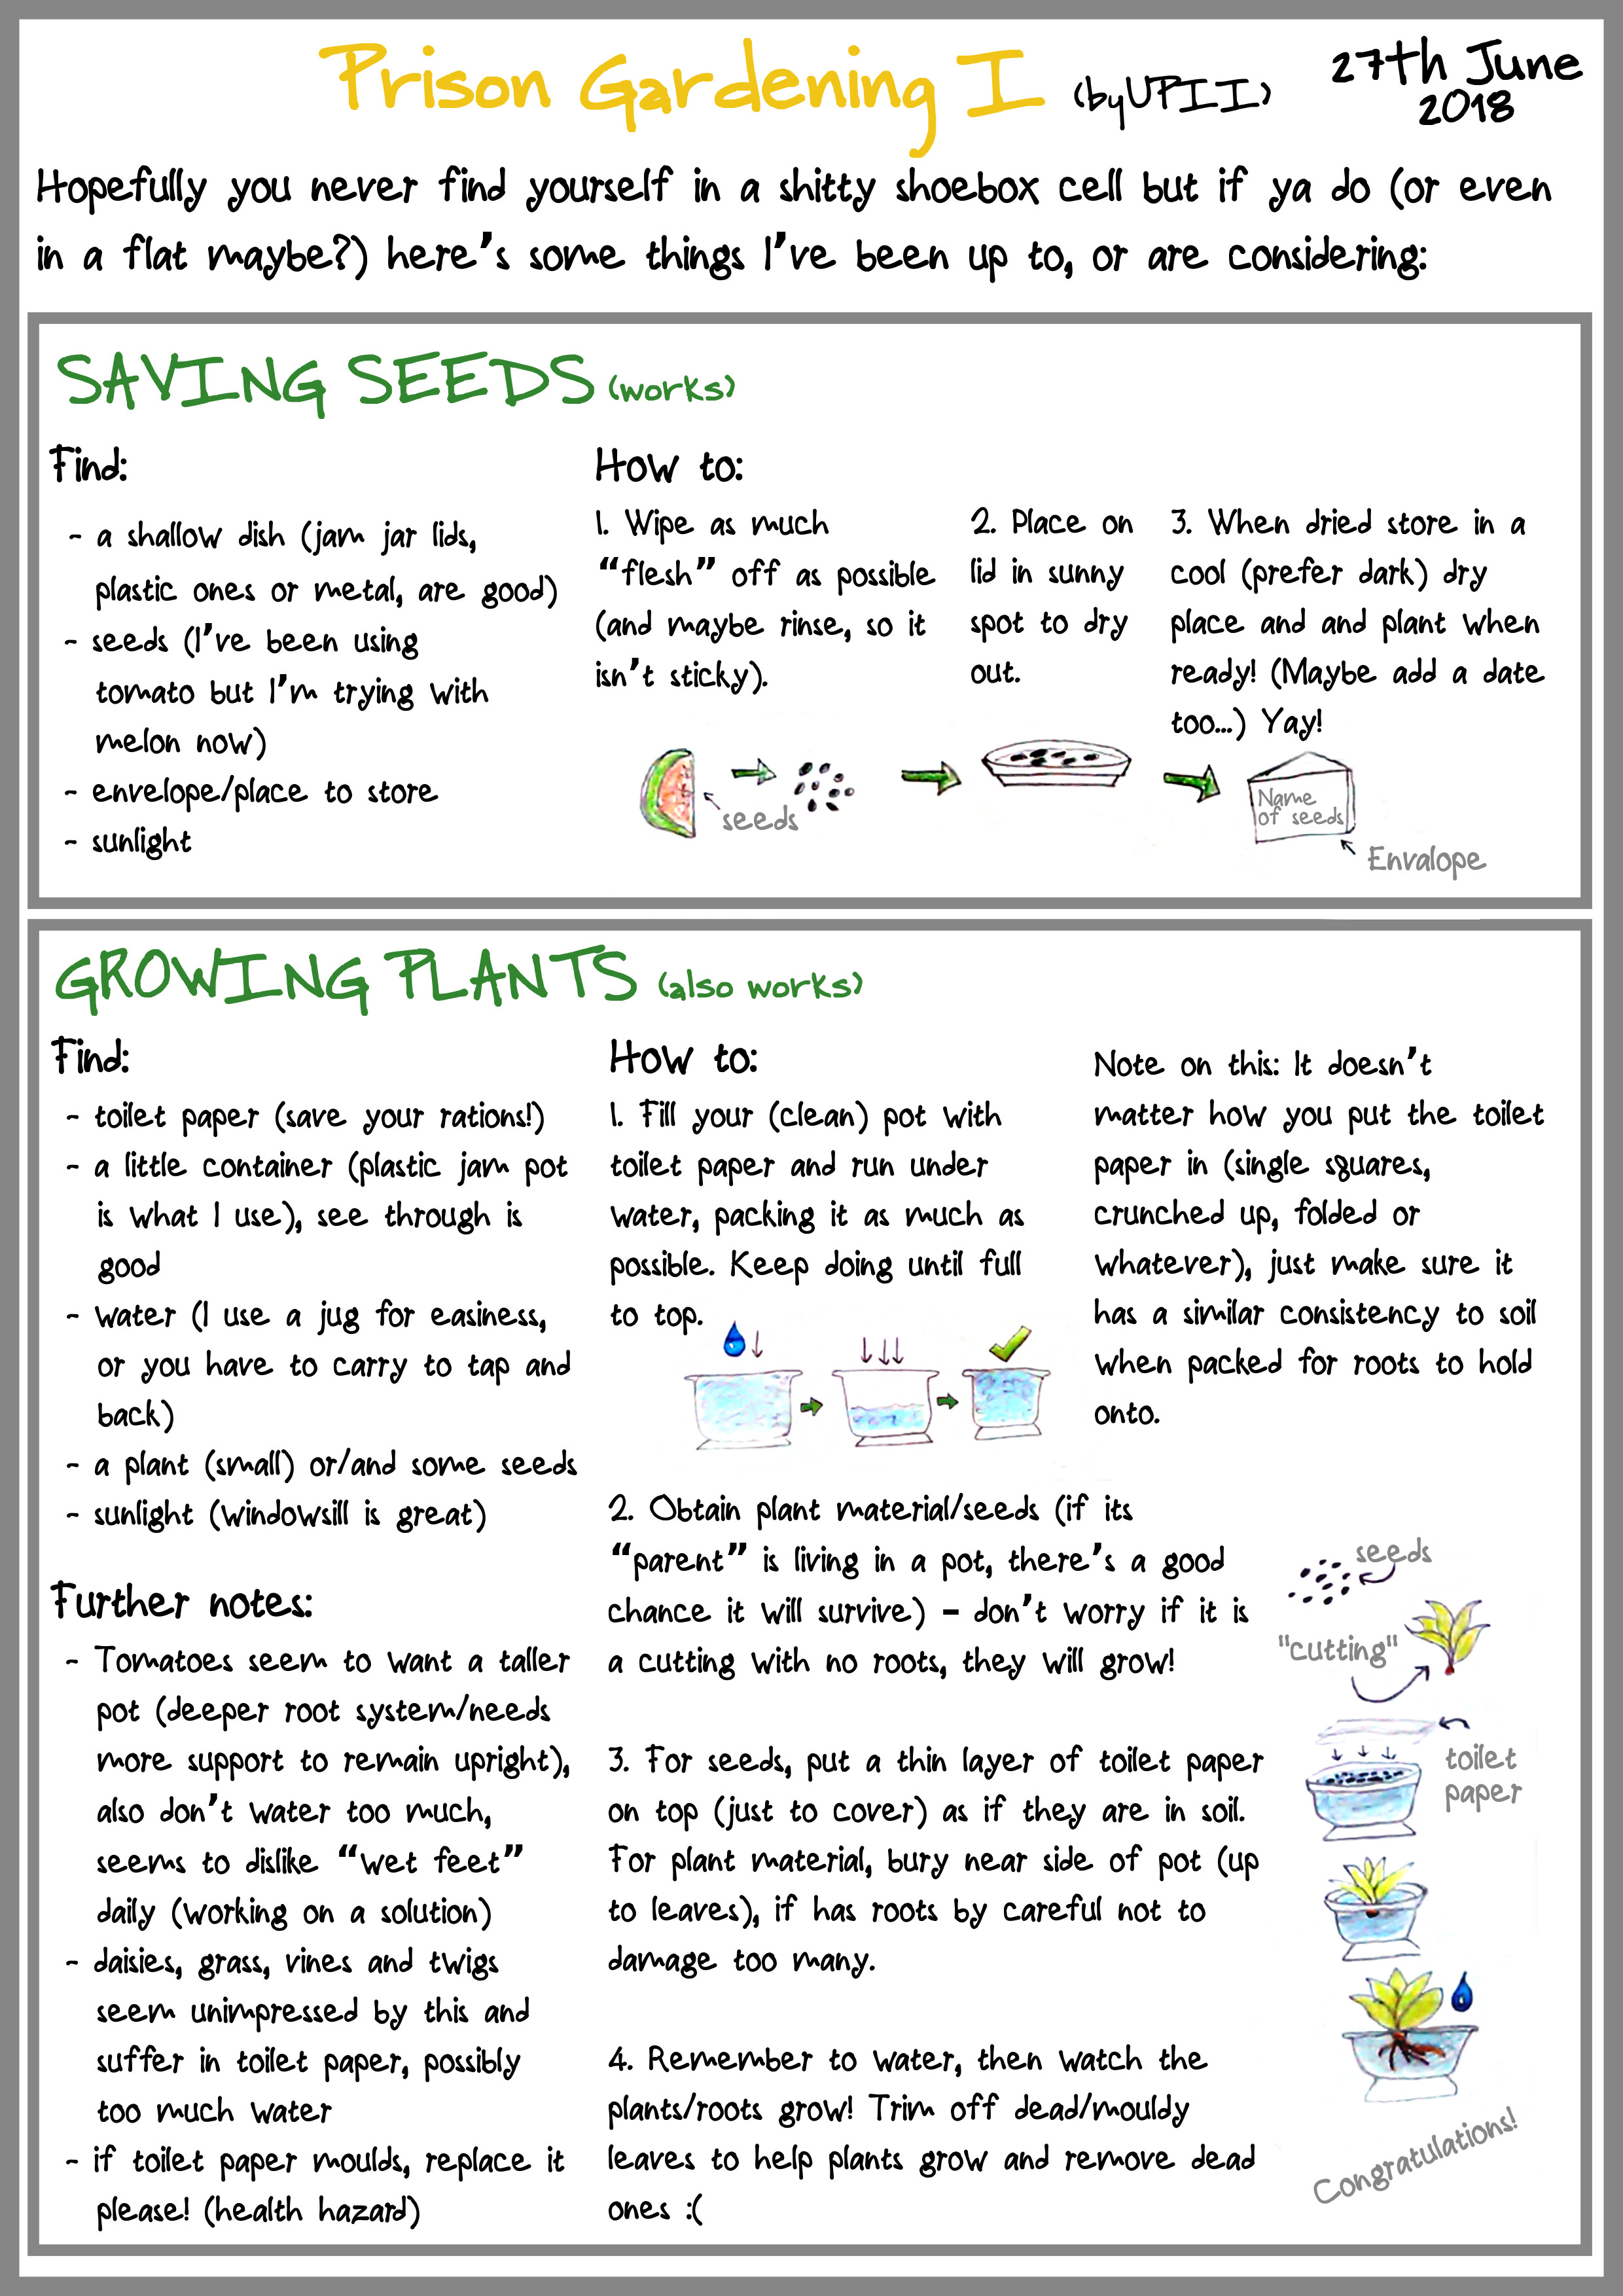 Prison Gardening I (byUPII)
27th June
2018
Hopefully you never find yourself in a shitty shoebox cell but if ya do (or even
in a flat maybe?) here's some things I've been up to, or are considering:
SAVING SEEDS (works)
Find:
- a shallow dish (jam jar lids,
plastic ones or metal, are good)
- seeds (I've been using
tomato but I'm trying with
melon now)
- envelope/place to store
- sunlight
How to:
1. Wipe as much
"flesh" off as possible
(and maybe rinse, so it
isn't sticky).
2. Place on
lid in sunny
spot to dry
out.
3. When dried store in a
cool (prefer dark) dry
place and and plant when
ready! (Maybe add a date
too...) Yay!
seeds
Name
of seeds
Envalope
GROWING PLANTS (also works)
Find:
- toilet paper (save your rations!)
- a little container (plastic jam pot
is what I use), see through is
good
- water (I use a jug for easiness,
or you have to carry to tap and
back)
- a plant (small) or/and some seeds
- sunlight (windowsill is great)
Further notes:
- Tomatoes seem to want a taller
pot (deeper root system/needs
more support to remain upright),
also don't water too much,
seems to dislike "wet feet"
daily (working on a solution)
- daisies, grass, vines and twigs
seem unimpressed by this and
suffer in toilet paper, possibly
too much water
- if toilet paper moulds, replace it
please! (health hazard)
How to:
1. Fill your (clean) pot with
toilet paper and run under
water, packing it as much as
possible. Keep doing until full
to top.
Note on this: It doesn't
matter how you put the toilet
paper in (single squares,
crunched up, folded or
whatever), just make sure it
has a similar consistency to soil
when packed for roots to hold
onto.
2. Obtain plant material/seeds (if its
"parent" is living in a pot, there's a good
chance it will survive) - don't worry if it is
a cutting with no roots, they will grow!
3. For seeds, put a thin layer of toilet paper
on top (just to cover) as if they are in soil.
For plant material, bury near side of pot (up
to leaves), if has roots by careful not to
damage too many.
4. Remember to water, then watch the
plants/roots grow! Trim off dead/mouldy
leaves to help plants grow and remove dead
ones :(
seeds
"cutting"
toilet
paper
Congratulations!